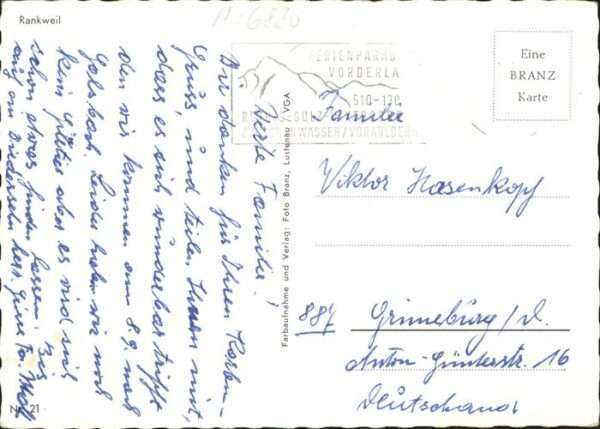 Rankweil
A-6830
FERIENPARAD
VORDERLA
510-1
WASSER/VORARLBER
Eine
BRANZ
Karte
Werte Familie!
Wir danken für Ihren Karten-
Gruss, und teilen Ihnen mit,
dass es sich wunderbar trifft
den wir kommen am 8.9. nach
Leider haben wir noch
kein aber es wird sich
schon etwas finden lassen. Bis
auf ein Wiedersehn herz. Grüsse Fam.
Nr. 21
Farbaufnahme und Verlag: Foto Branz, Lustenau VGA
Familie
Viktor Hasenkopf
887 Günzburg/D.
Anton-Günterstr. 16
Deutschland